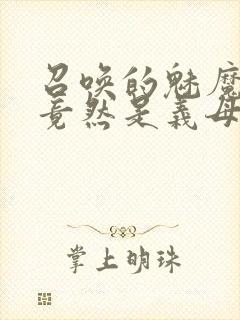 召唤的魅魔
竟然是义母
掌上明珠